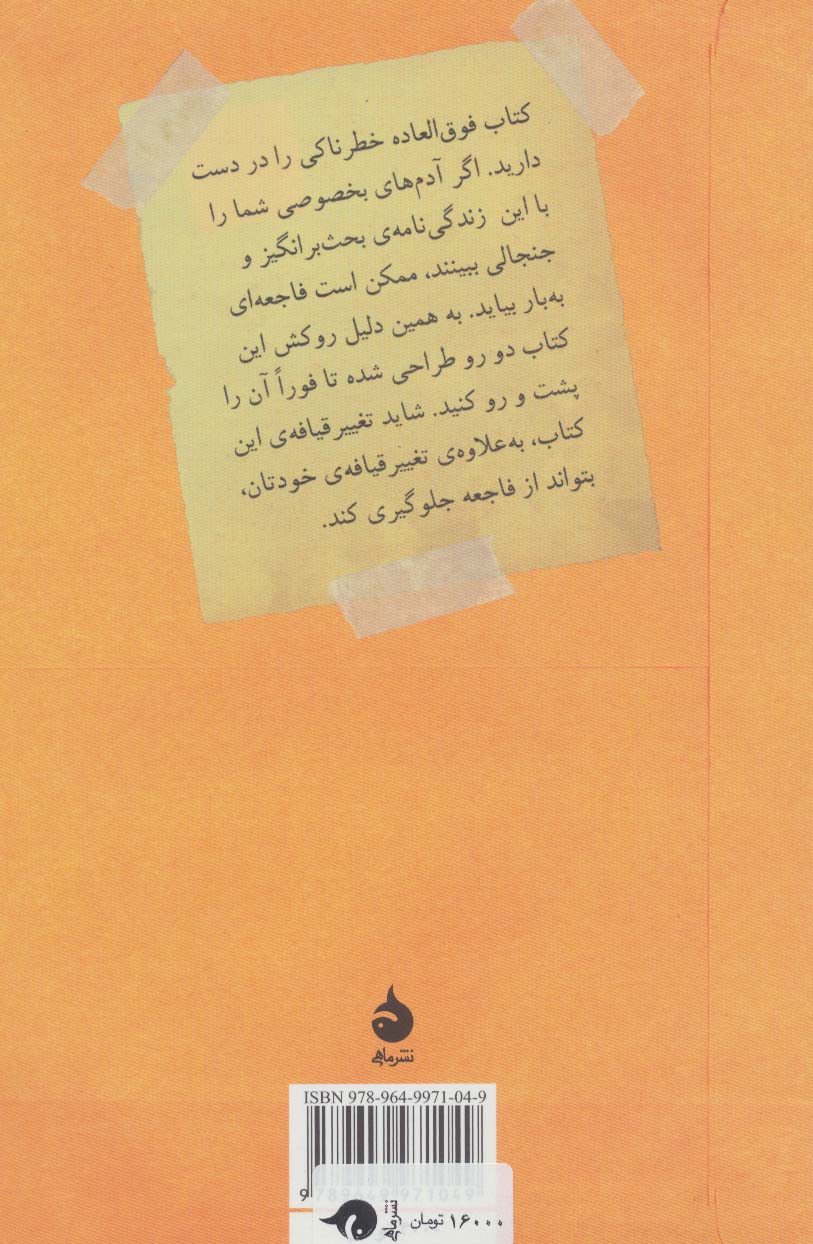 کتاب فوق‌العاده خطرناکی را در دست
دارید. اگر آدم‌های بخصوصی شما را
با این زندگی‌نامه‌ی بحث‌برانگیز و
جنجالی ببینند، ممکن است فاجعه‌ای
به‌بار بیاید. به همین دلیل روکش این
کتاب دو رو طراحی شده تا فوراً آن را
پشت و رو کنید. شاید تغییرقیافه‌ی این
کتاب، به‌علاوه‌ی تغییرقیافه‌ی خودتان،
بتواند از فاجعه جلوگیری کند.
نشرماهی
ISBN 978-964-9971-04-9
9 789649 971049
نشرماهی
۱۶۰۰۰ تومان